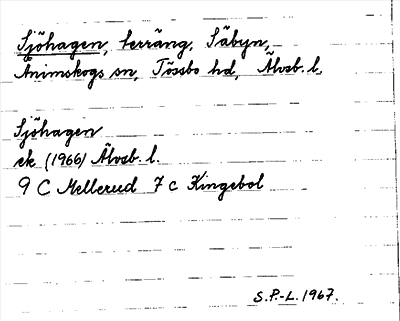 Sjöhagen, terräng, Säbyn,
Ånimskogs sn, Tössbo hd, Älvsb. l.
Sjöhagen
ek (1966) Älvsb. l.
9 C Mellerud 7 c Kingebol
S.P.-L. 1967.